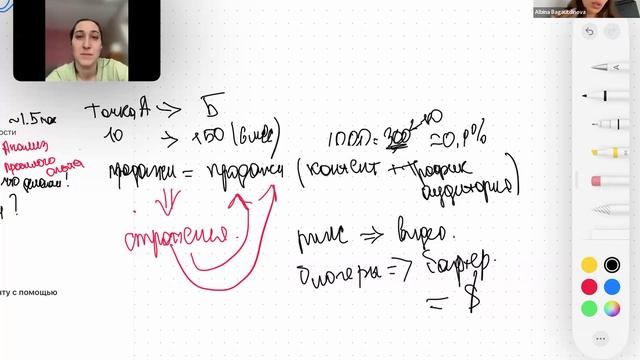 Albina Bagautdinova
~1.5 час
ости
Анализ
прошлого опыта
что делали!
?
точка А → Б
10 → 150
1000 = 300 → 10 ≈ 0,1%
продажи = продажи (контент + трафик
аудитория)
рилс ⇒ видео.
блогеры => бартер.
= $
нту с помощью